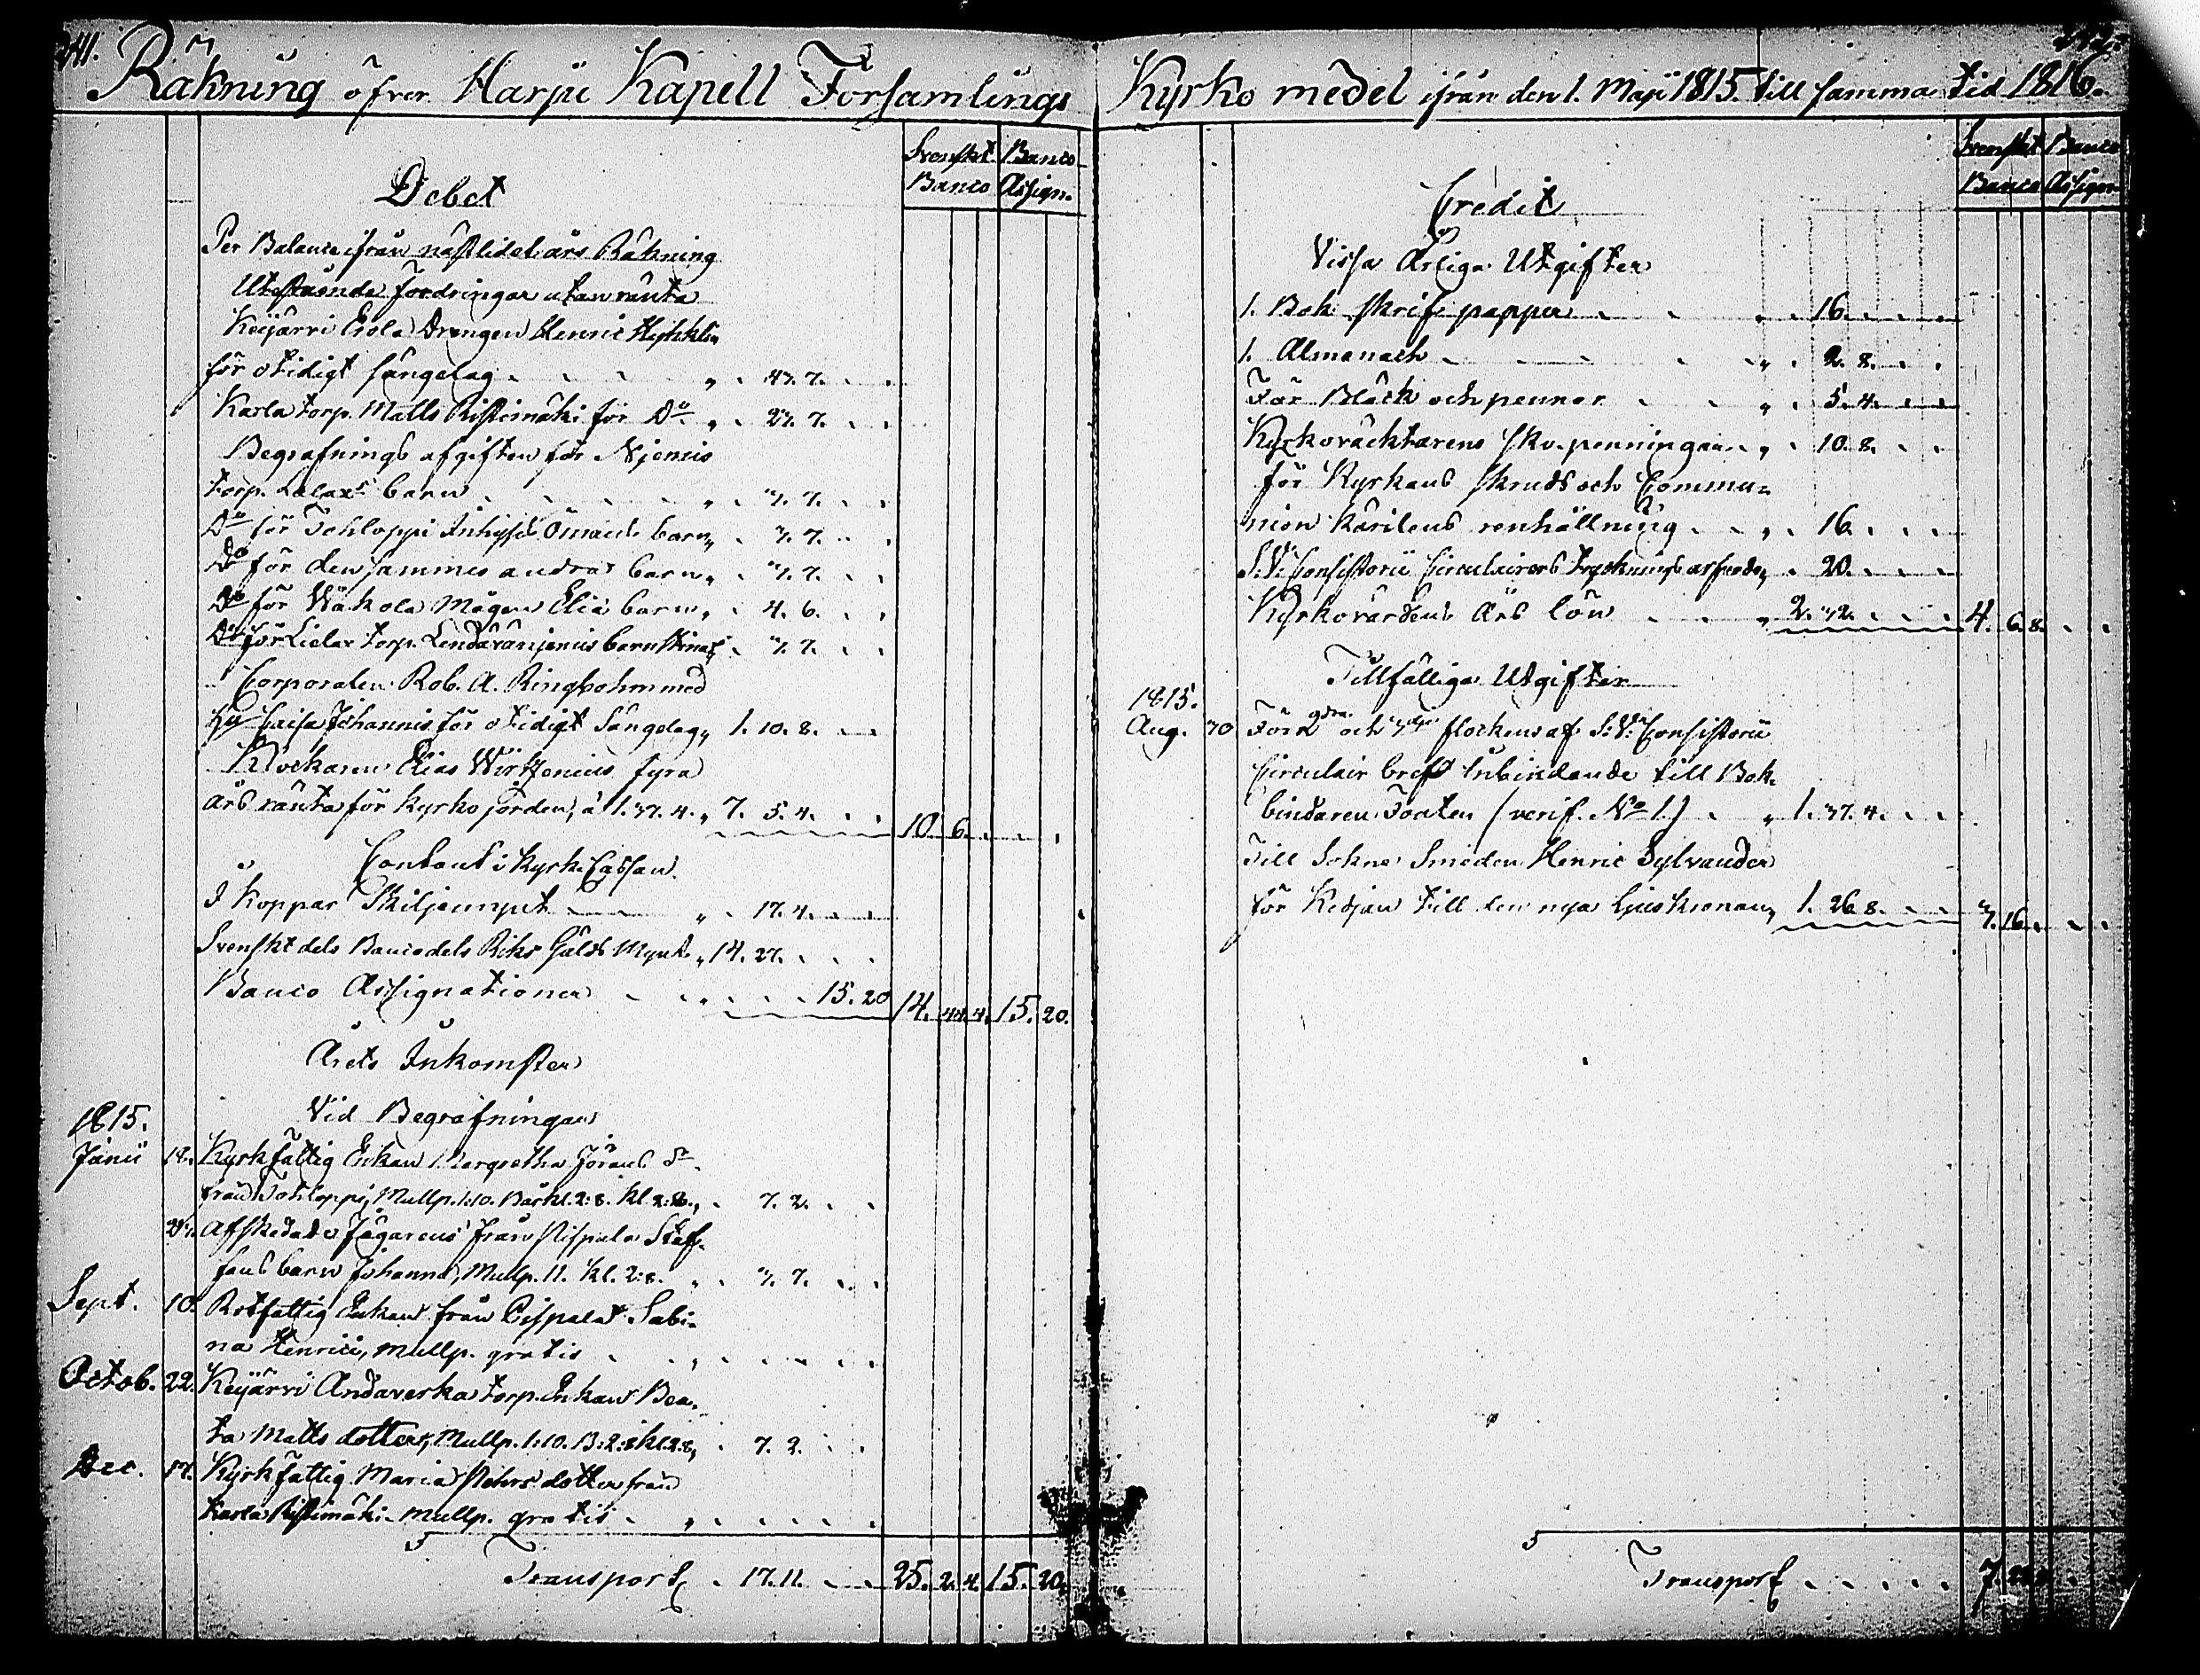 241.
Räkning öfver Harju Kapell Församlings
Svenskt Banco
Banco Assign.
Debet
Per Balance ifrån nästlidet års Räkning
Utestående fordringar utan ränta
Keijärvi Erola Drengen Henric
för otidigt sängelag " 43. 7.
Karla torp. Matts Ristimäki för Do " 23. 7.
Begrafnings afgiften för Njemis
torp. barn " 3. 7.
Do för Tohloppi Inhyses barn " 3. 7.
Do för den sammes andra barn " 3. 7.
Do för Wäkola Mågen Eliæ barn " 4. 6.
Do för torp. barn " 3. 7.
Corporalen Rob. A. Ringbohm med
Caisa Johannis för otidigt Sängelag " 1. 10. 8.
Klockaren Elias Wirzenius fyra
års ränta för kyrko jorden, à 1. 37. 4. " 7. 5. 4. 10. 6.
Contant i Kyrk Cassan.
I Koppar Skiljemynt " 17. 4.
Svenskt dels Banco dels Riks Gälds Mynt " 14. 27.
Banco Assignationer 15. 20 14. 44. 4. 15. 20.
Årets Inkomster
Vid Begrafningar
1815.
Junii 18. Kyrkfattig Enkan Margretha Jörans Dr
från Tohloppi, Mullp. 1:10. Bårkl. 2:8. Kl. 2:8. " 7. 2.
Afskedade Jägarens från Pispala Stef-
fans barn Johanna, Mullp. 11. Kl. 2:8. " 3. 7.
Sept. 10. Rotfattig Enkan från Pispala Sabi-
na Henrici, Mullp. gratis
Octob. 22. Keijärvi Andaverka torp. Enkan Bea-
ta Matts dotter, Mullp. 1:10. B: 2:8 kl 2:8, 7. 2.
Dec. 17. Kyrkfattig Maria Mats dotter från
Karla Ristimäki Mullp. gratis
Transport 17. 11. 25. 2. 4. 15. 20.
242.
Kyrko medel ifrån den 1. Maji 1815. till samma tid 1816.
Svenskt Banco
Banco Assign.
Credit
Vissa Årliga Utgifter
1. Bok skrif papper " 16.
1. Almanach " 2. 8.
För Bläck och pennor " 5. 4.
Kyrkoväcktarens sko penningar " 10. 8.
för Kyrkans skruds och Commu-
nion kärilens renhållning " 16.
S: V: Consistorii Circulairers trycknings arfvode " 20.
Kyrkovärdens Års lön " 2. 32. 4. 6. 8.
Tillfällige Utgifter
1815.
Aug. 30 För 2dra och 3dje flockens af S: V: Consistorii
Circulair bref Inbindande till Bok-
bindaren Tonten (verif. No 1.) " 1. 37. 4.
Till Sokne Smeden Henric Sylvander
för Kedjan till den nya Ljus Kronan " 1. 26. 8. 3. 16.
Transport 7. 22. 8.